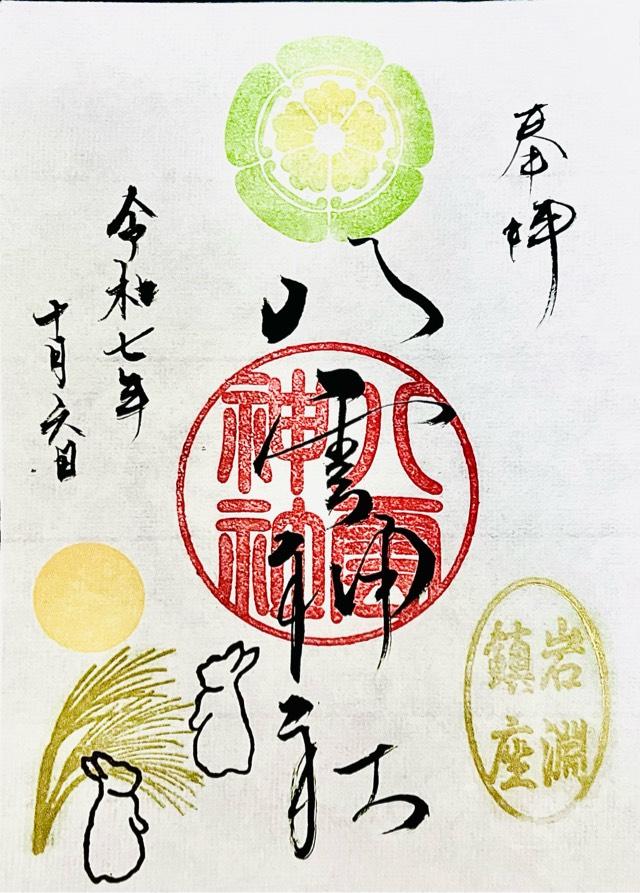 奉拝
八雲神社
八雲
神社
岩淵
鎮座
令和七年
十月六日